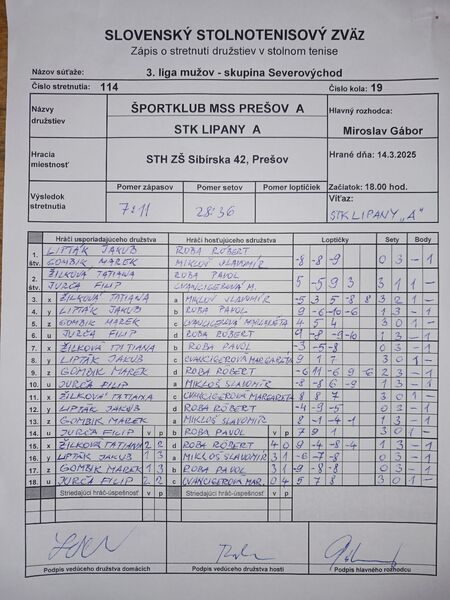 SLOVENSKÝ STOLNOTENISOVÝ ZVÄZ
Zápis o stretnutí družstiev v stolnom tenise
Názov súťaže: 3. liga mužov - skupina Severovýchod
Číslo stretnutia: 114 Číslo kola: 19
Názvy družstiev ŠPORTKLUB MSS PREŠOV A Hlavný rozhodca:
STK LIPANY A Miroslav Gábor
Hracia miestnosť STH ZŠ Sibírska 42, Prešov Hrané dňa: 14.3.2025
Výsledok stretnutia Pomer zápasov Pomer setov Pomer loptičiek Začiatok: 18.00 hod.
7:11 28:36 Víťaz: STK LIPANY "A"
Hráči usporiadajúceho družstva Hráči hosťujúceho družstva Loptičky Sety Body
1. LIPTÁK JAKUB ROBA RÓBERT
štv. GOMBIK MAREK MIKLOŠ SLAVOMÍR -8 -8 -9 0 3 - 1
2. ŽILKOVÁ TATIANA ROBA PAVOL
štv. JURČA FILIP CVANCIGEROVÁ M. 5 -5 9 3 3 1 1 -
3. x ŽILKOVÁ TATIANA a MIKLOŠ SLAVOMÍR -5 3 5 -8 8 3 2 1 -
4. y LIPTÁK JAKUB b ROBA PAVOL 9 -6 -10 -6 1 3 - 1
5. z GOMBIK MAREK c CVANCIGEROVÁ MARGARÉTA 4 5 4 3 0 1 -
6. u JURČA FILIP d ROBA RÓBERT 9 -8 -9 -10 1 3 - 1
7. x ŽILKOVÁ TATIANA b ROBA PAVOL -3 -5 -8 0 3 - 1
8. y LIPTÁK JAKUB c CVANCIGEROVÁ MARGARÉTA 9 1 7 3 0 1 -
9. z GOMBIK MAREK d ROBA RÓBERT -6 11 -6 9 -6 2 3 - 1
10. u JURČA FILIP a MIKLOŠ SLAVOMÍR -8 -8 6 -9 1 3 - 1
11. x ŽILKOVÁ TATIANA c CVANCIGEROVÁ MARGARÉTA 8 8 7 3 0 1 -
12. y LIPTÁK JAKUB d ROBA RÓBERT -4 -9 -5 0 3 - 1
13. z GOMBIK MAREK a MIKLOŠ SLAVOMÍR 8 -1 -4 -1 1 3 - 1
14. u JURČA FILIP v p b ROBA PAVOL v p 7 9 7 3 0 1 -
15. x ŽILKOVÁ TATIANA 2 2 d ROBA RÓBERT 4 0 9 -4 -8 -4 1 3 - 1
16. y LIPTÁK JAKUB 1 3 a MIKLOŠ SLAVOMÍR 3 1 -6 -7 -8 0 3 - 1
17. z GOMBIK MAREK 1 3 b ROBA PAVOL 3 1 -9 -8 -8 0 3 - 1
18. u JURČA FILIP 2 2 c CVANCIGEROVÁ MAR. 0 4 5 7 8 3 0 1 -
Striedajúci hráč-úspešnosť v p Striedajúci hráč-úspešnosť v p
Podpis vedúceho družstva domácich Podpis vedúceho družstva hostí Podpis hlavného rozhodcu